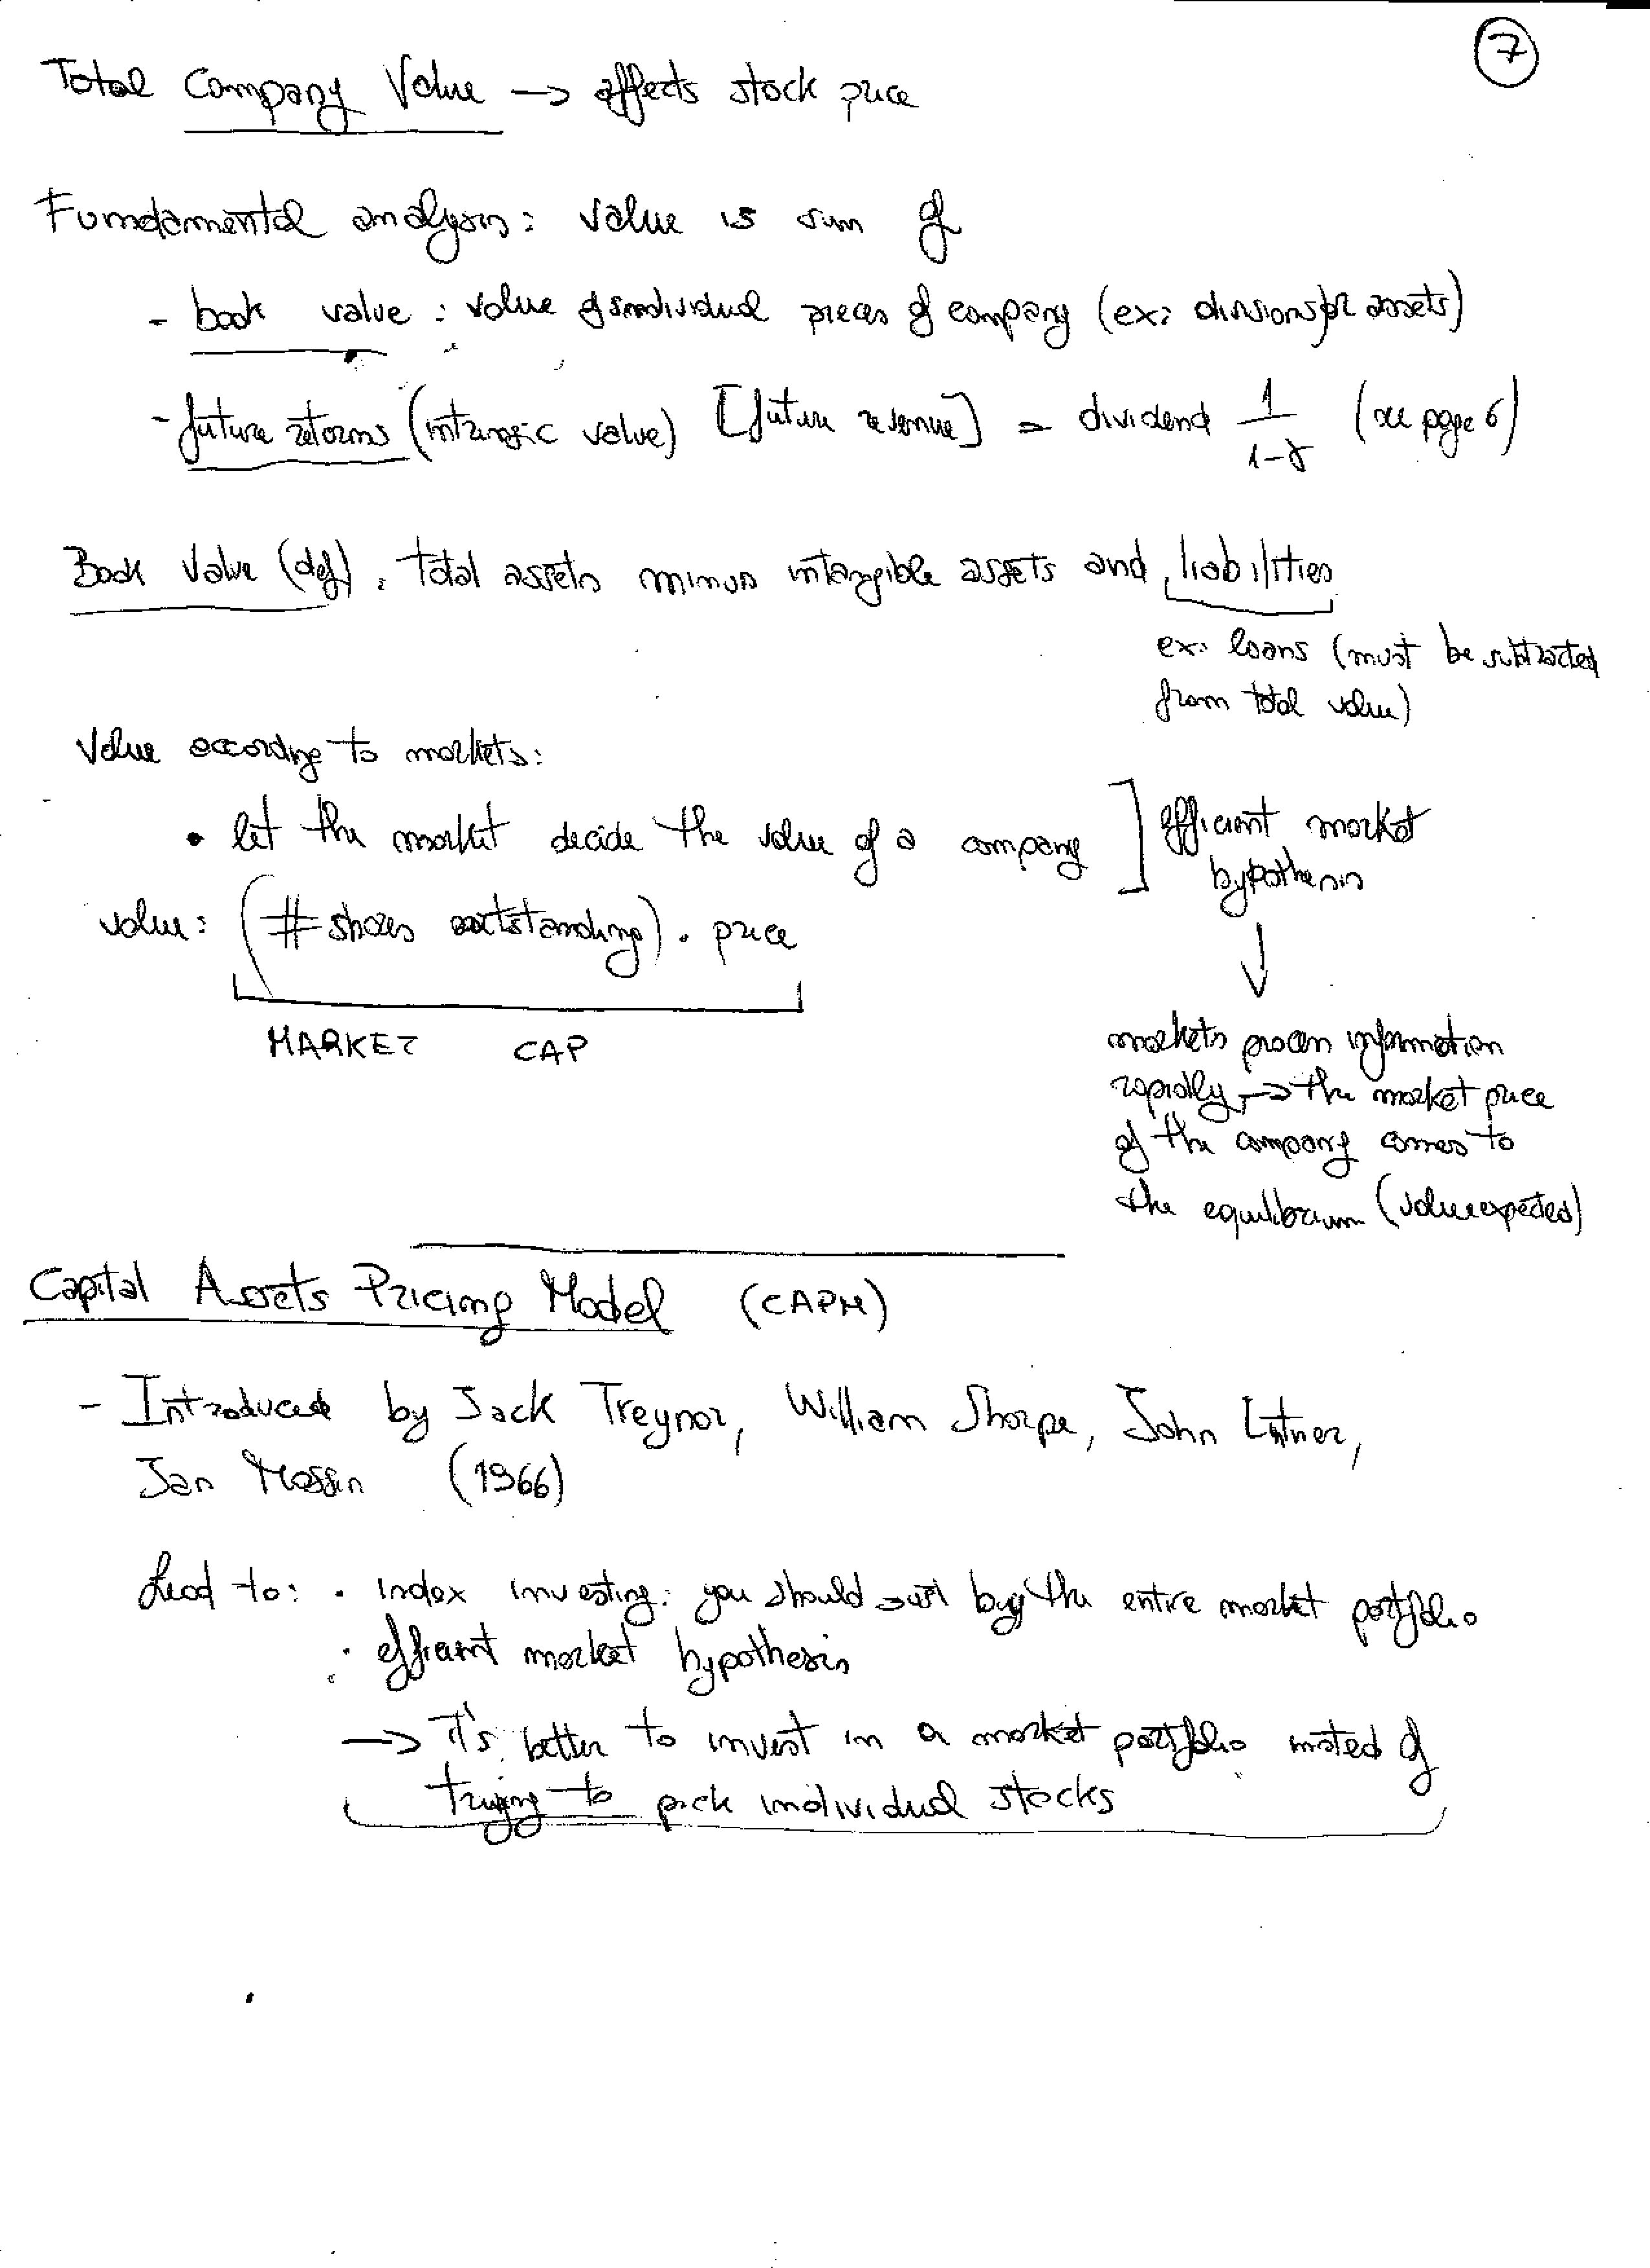 7
Total Company Value → affects stock price
Fundamental analysis: value is sum of
- book value: value of individual pieces of company (ex: divisions or assets)
- future returns (intrinsic value) [future revenue] = dividend 1/1-γ (see page 6)
Book Value (def): total assets minus intangible assets and liabilities
ex: loans (must be subtracted
from total value)
Value according to markets:
• let the market decide the value of a company ] efficient market
hypothesis
value: (# shares outstanding) · price
MARKET CAP
↓
markets process information
rapidly → the market price
of the company comes to
the equilibrium (value expected)
Capital Assets Pricing Model (CAPM)
- Introduced by Jack Treynor, William Sharpe, John Litner,
Jan Mossin (1966)
Lead to: • index investing: you should just buy the entire market portfolio
• efficient market hypothesis
→ it's better to invest in a market portfolio insted of
trying to pick individual stocks